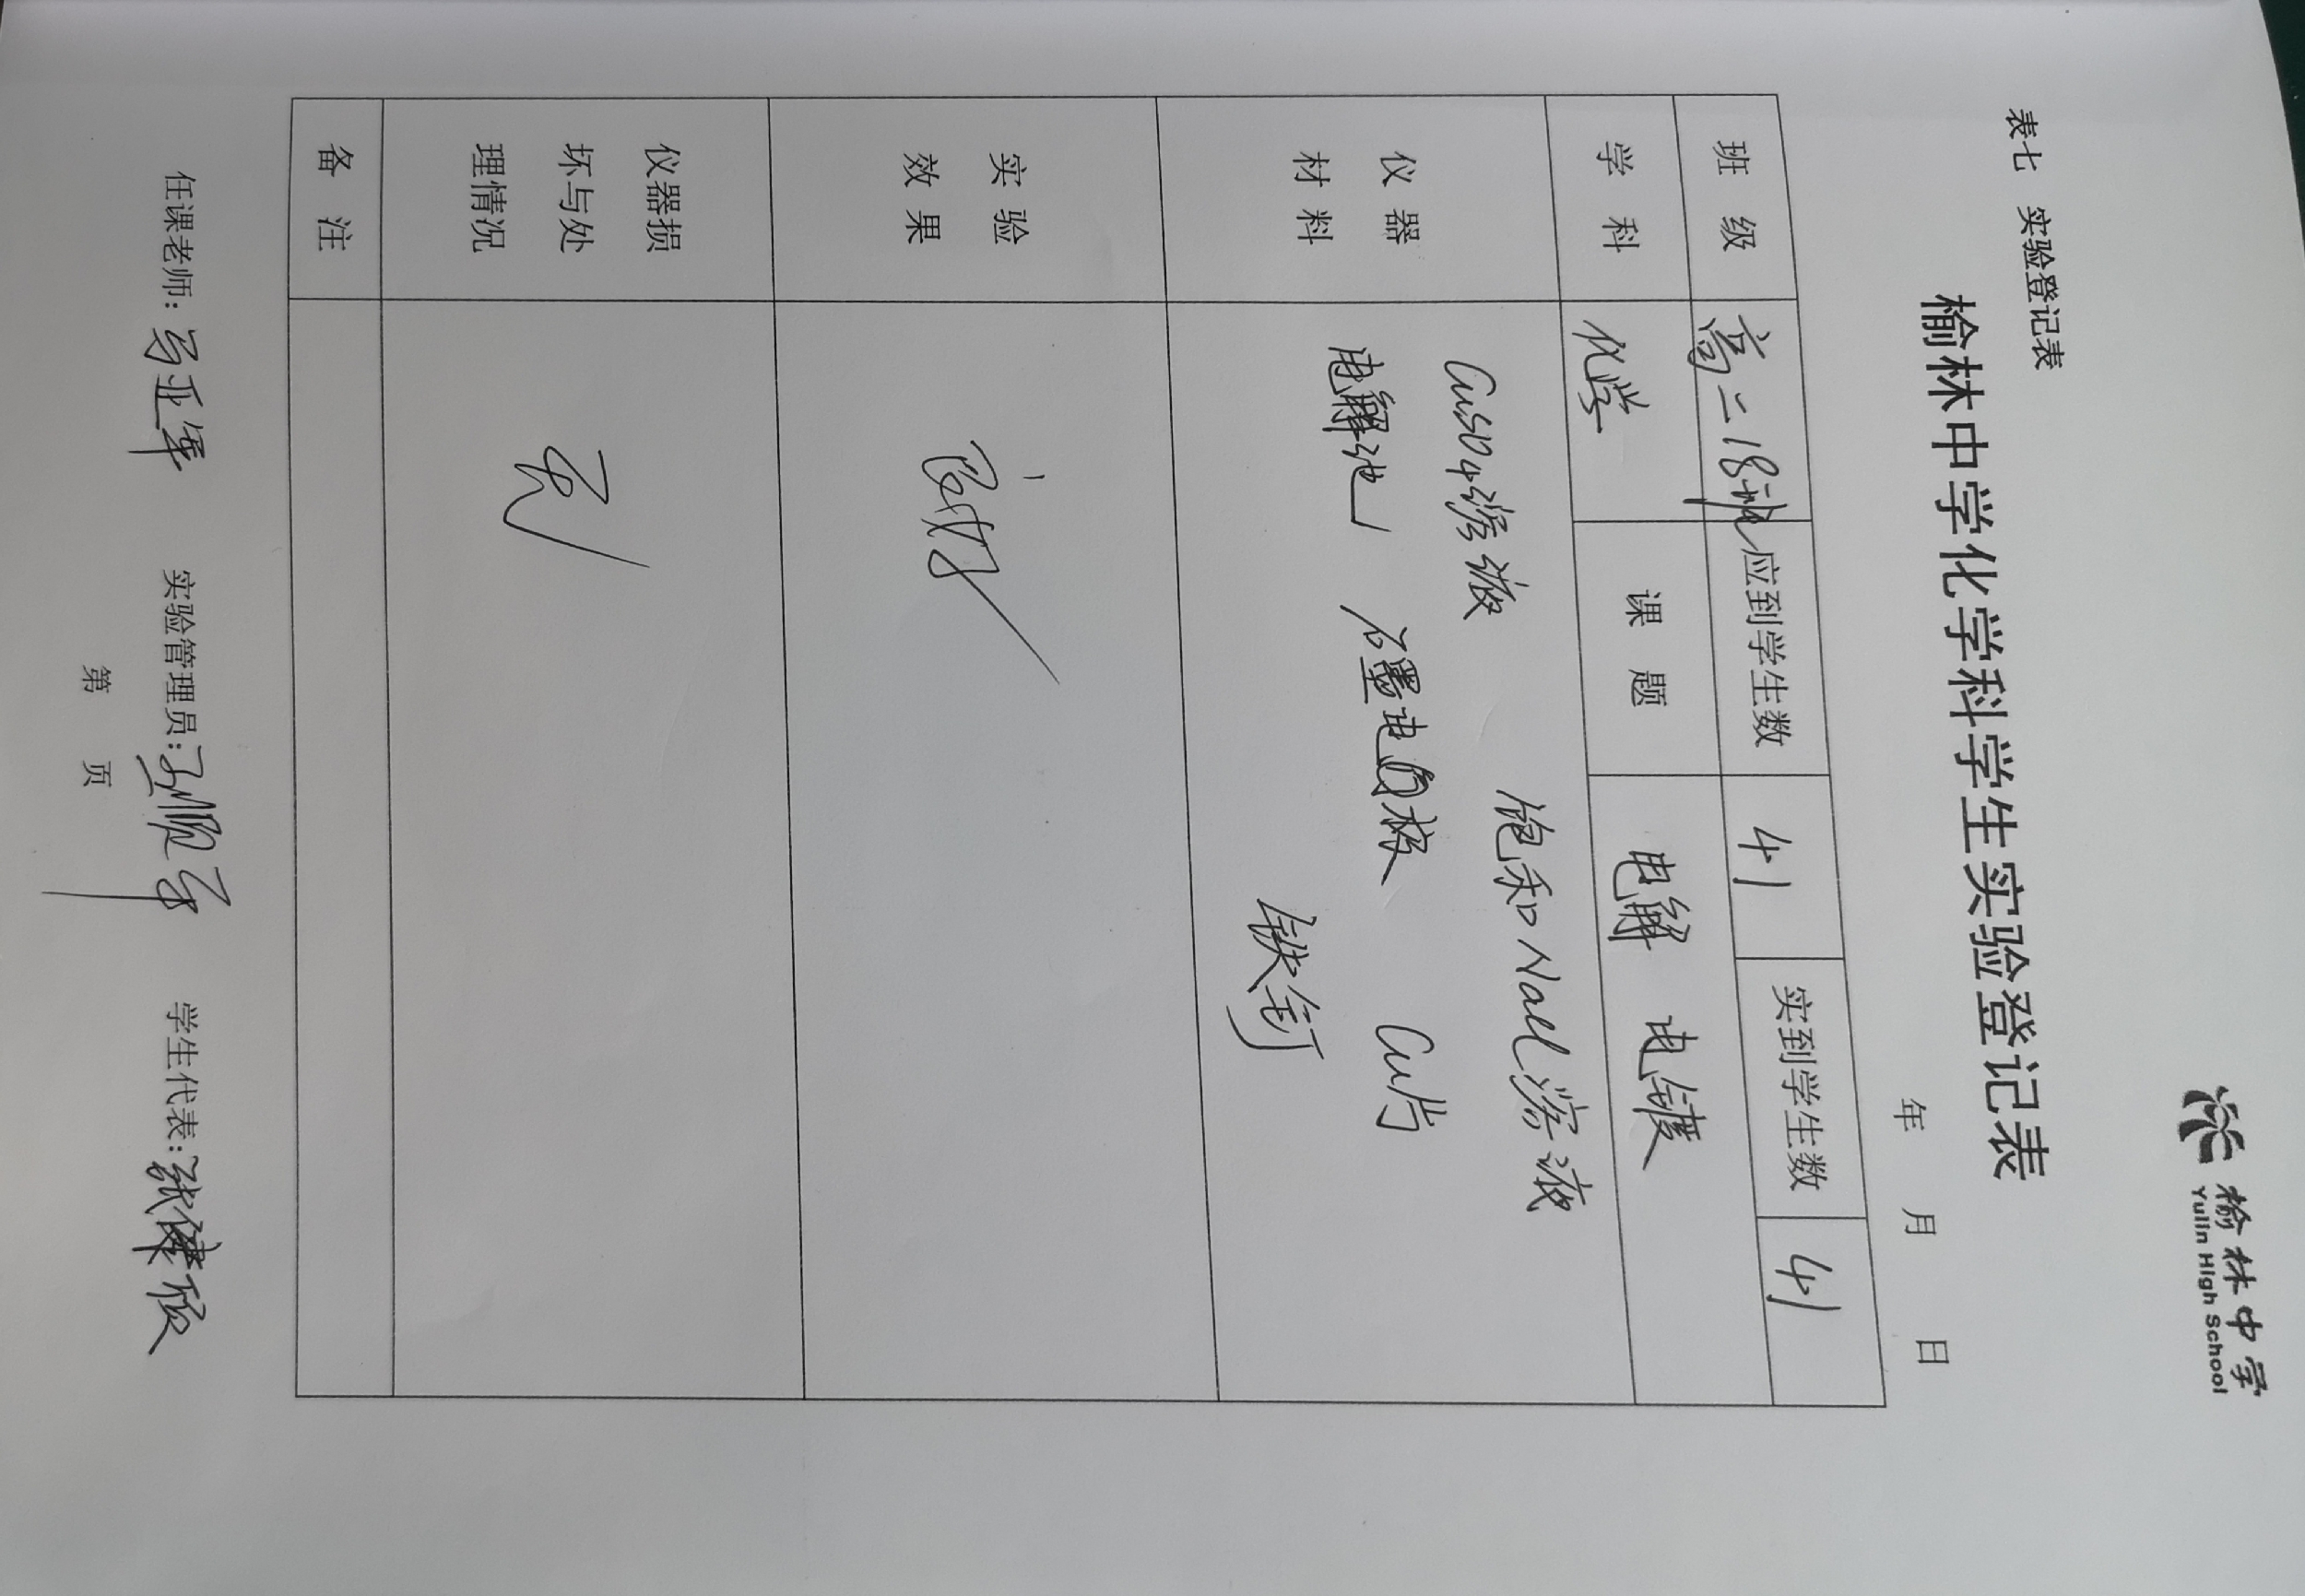 榆林中学
Yulin High School
表七 实验登记表
榆林中学化学科学学生实验登记表
年 月 日
班 级 高二18班 应到学生数 41 实到学生数 41
学 科 化学 课 题 电解 电镀
仪 器
材 料
CuSO4溶液 饱和NaCl溶液
电解池 石墨电极 Cu片
铁钉
实 验
效 果
良好
仪器损
坏与处
理情况
无
备 注
任课老师: 实验管理员: 学生代表:
第 页